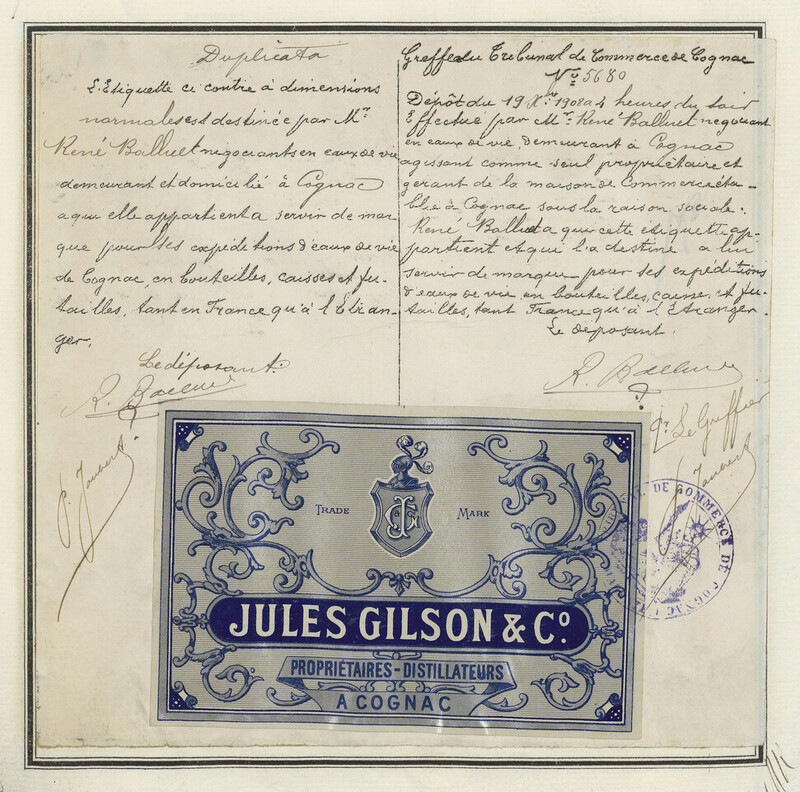 Duplicata
L'Etiquette ci contre à dimensions
normales est destinée par Mr
René Balluet negociants en eaux de vie
demeurant et domicilié à Cognac
a qui elle appartient a servir de mar-
que pour ses expéditions d'eaux de vie
de Cognac, en bouteilles, caisses et fu-
tailles, tant en France qu'à l'Etran-
ger.
Le déposant.
R. Balluet
P. Joubert
Greffe du Tribunal de Commerce de Cognac
No 5680
Dépôt du 19 Xbre 1908 a 4 heures du soir
Effectué par Mr. René Balluet negociant
en eaux de vie, demeurant à Cognac
agissant comme seul propriétaire et
gerant de la maison de Commerce éta-
blie à Cognac sous la raison sociale.
René Balluet a qui cette étiquette ap-
partient et qui l'a destiné a lui
servir de marque pour ses expéditions
d'eaux de vie en bouteilles, caisses et fu-
tailles, tant France qu'à l'Etranger.
Le deposant.
R. Balluet
pr Le Greffier
P. Joubert
DE COMMERCE DE COGNAC
TRADE MARK
JGC
JULES GILSON & Co.
PROPRIÉTAIRES-DISTILLATEURS
A COGNAC